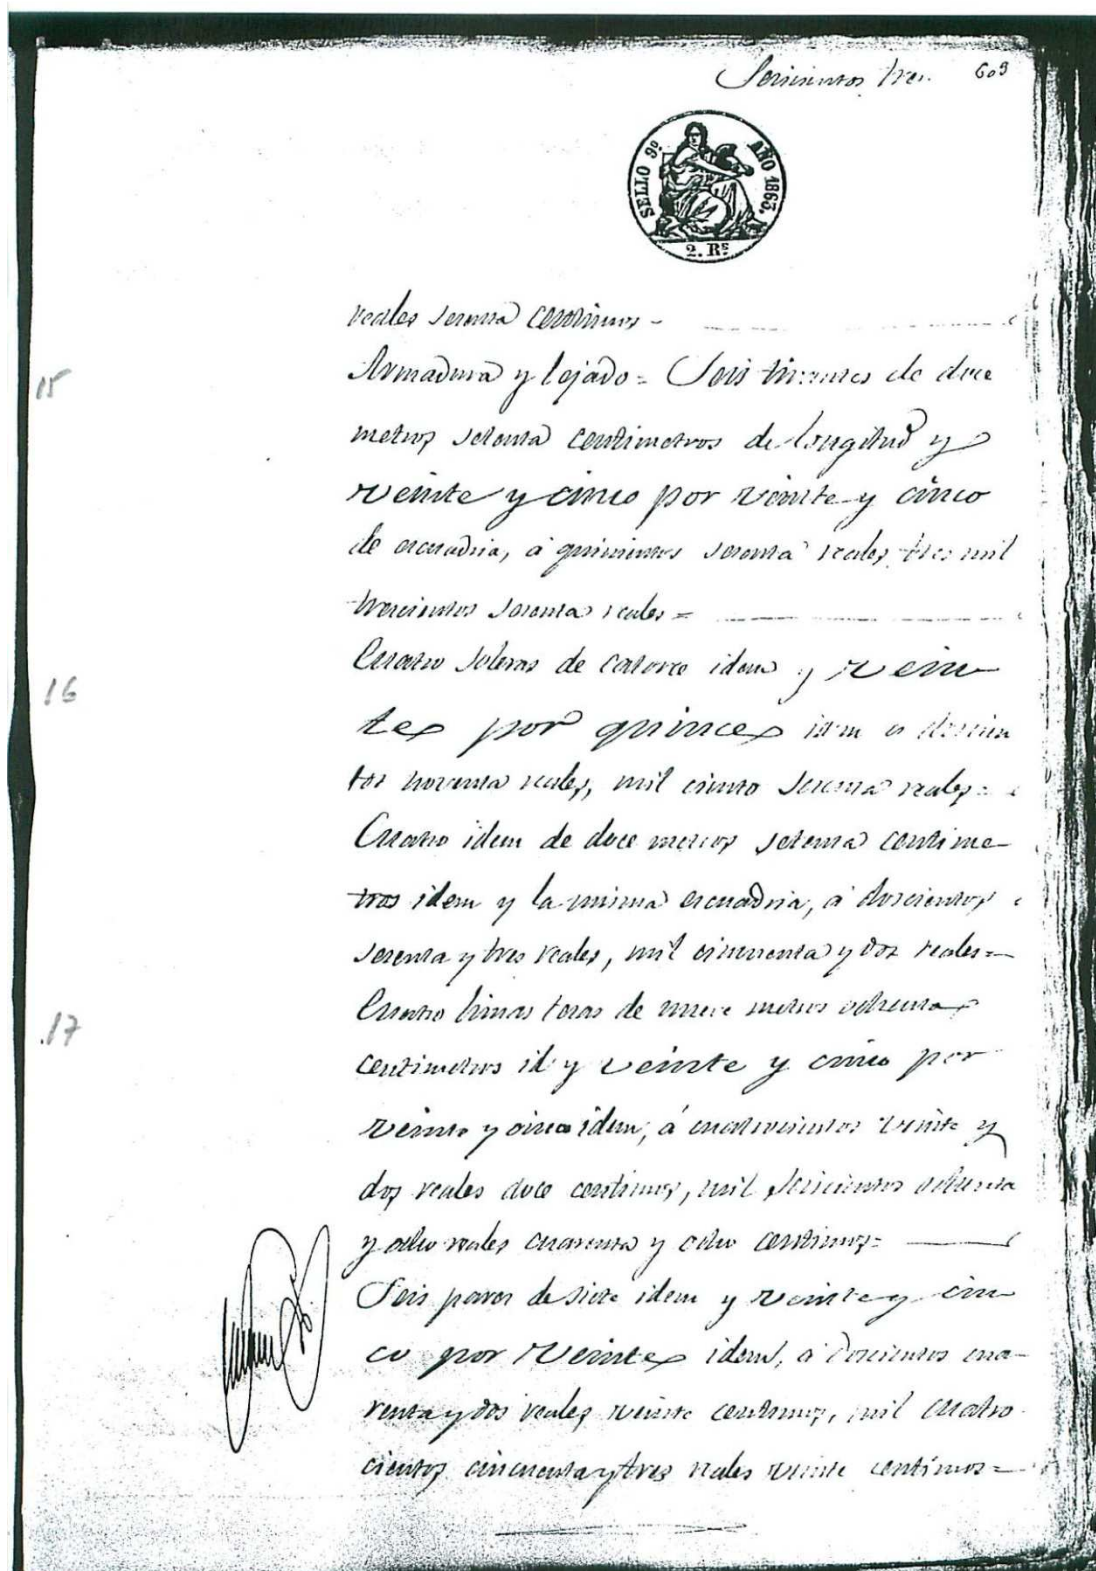 Seiscientos tres. 603
SELLO 9º AÑO 1863.
2. Rˢ
reales sesenta centimos -
15
Armadura y tejado = Seis tirantes de doce
metros setenta centimetros de longitud y
veinte y cinco por veinte y cinco
de escuadria, á quinientos sesenta reales, tres mil
trescientos sesenta reales =
16
Cuatro soleras de catorce idem y vein
te por quince idem a doscien
tos noventa reales, mil ciento sesenta reales =
Cuatro idem de doce metros setenta centime-
tros idem y la misma escuadria, á doscientos
sesenta y tres reales, mil cincuenta y dos reales =
17
Cuatro limas tesas de nueve metros ochenta
centimetros id y veinte y cinco por
veinte y cinco idem, á cuatrocientos veinte y
dos reales doce centimos, mil seiscientos ochenta
y ocho reales cuarenta y ocho centimos =
Seis pares de siete idem y veinte y cin
co por veinte idem, á doscientos cua-
renta y dos reales veinte centimos, mil cuatro
cientos cincuenta y tres reales veinte centimos =